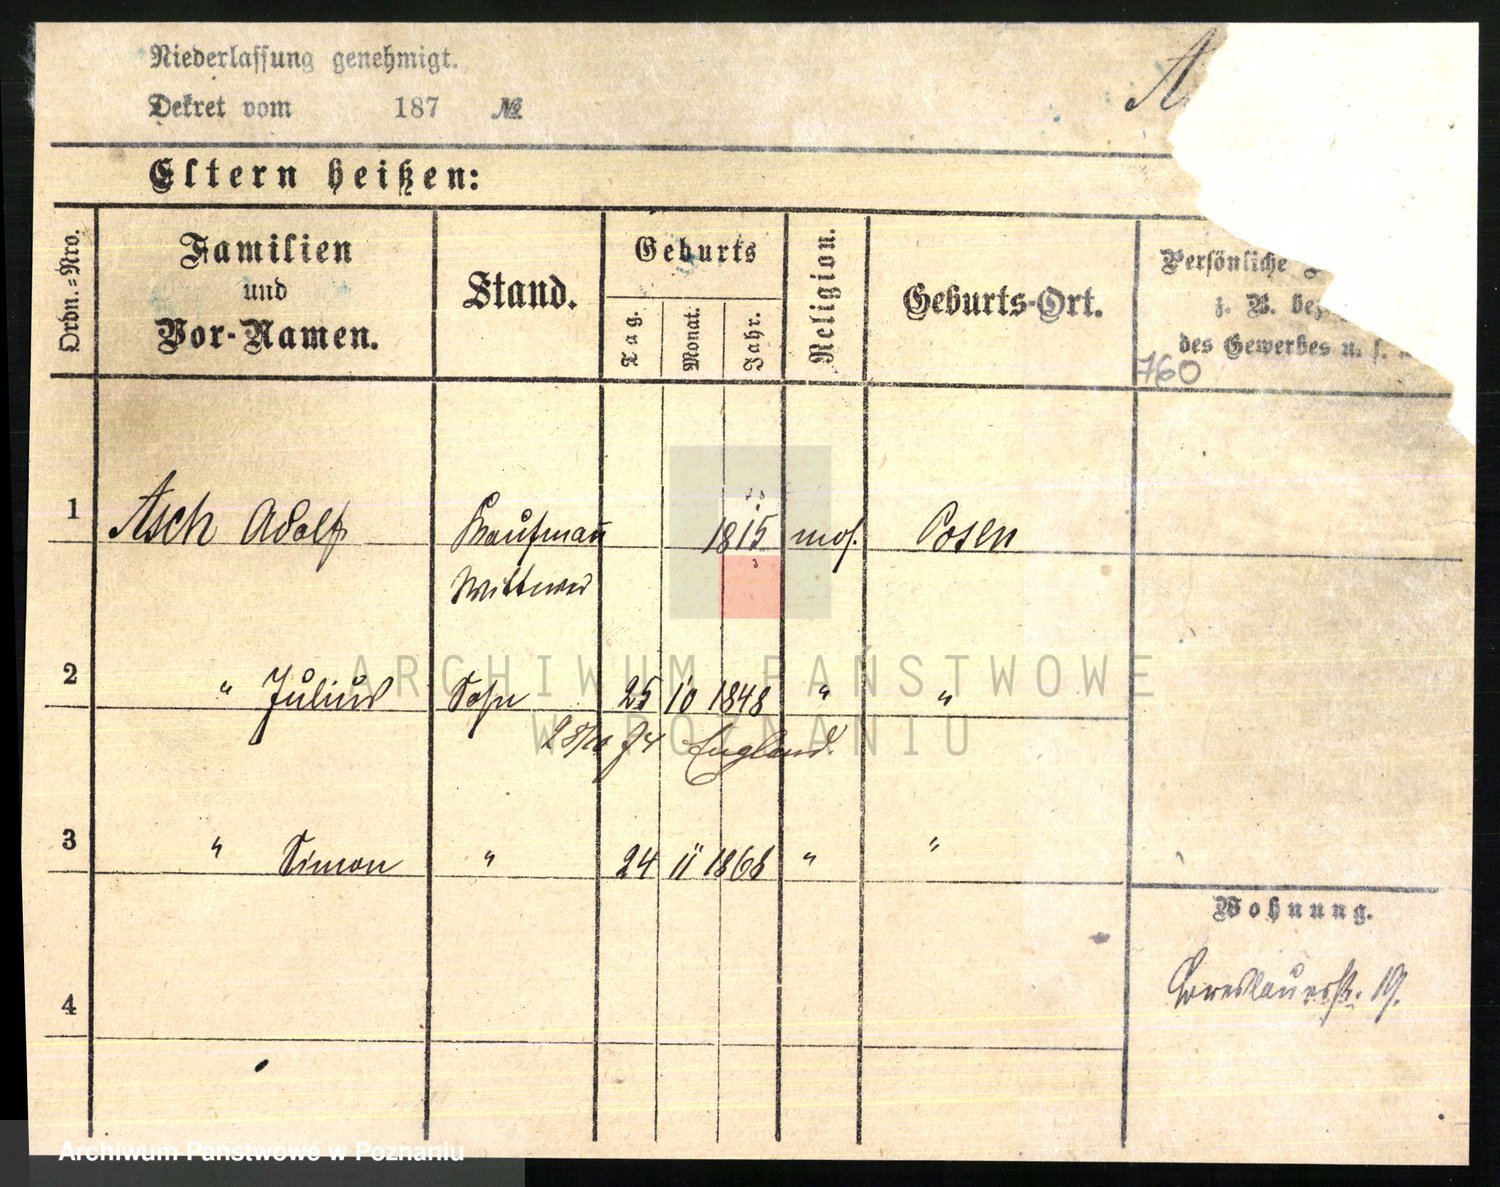 Niederlassung genehmigt.
Dekret vom 187 №
A
Eltern heißen:
Ordn.-Nro.
Familien
und
Vor-Namen.
Stand.
Geburts
Tag.
Monat.
Jahr.
Religion.
Geburts-Ort.
Persönliche
z. B. bez
des Gewerbes u. s. w
760
1 Asch Adolf Kaufmann 1815 mos. Posen
Wittwer
2 " Julius Sohn 25 10 1848 " "
28/10 74 England.
3 " Simon " 24 11 1868 " "
Wohnung.
Breslauerstr. 19.
4
ARCHIWUM PAŃSTWOWE
W POZNANIU
Archiwum Państwowe w Poznaniu